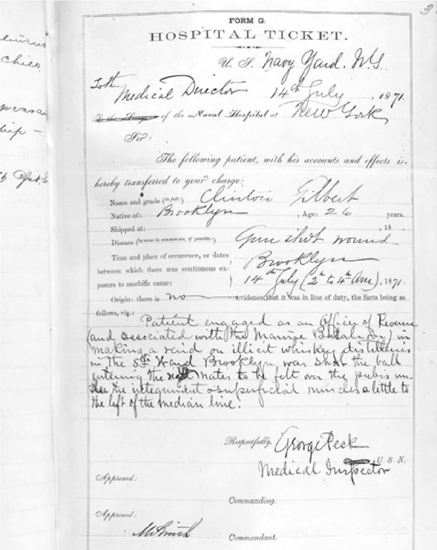 3
FORM G.
HOSPITAL TICKET.
U. S. Navy Yard. N.Y.
To the Medical Director 14th July, 1871.
To the Surgeon of the Naval Hospital at New York
SIR:
The following patient, with his accounts and effects is
hereby transferred to your charge:
Name and grade Clinton Gilbert
Native of: Brooklyn, Age: 26 years.
Shipped at: 18
Disease Gun shot wound
Time and place of occurrence, or dates Brooklyn
between which there was continuous ex-
posure to morbific cause: 14th July (2d to 4th Am), 1871.
Origin: there is no evidence that it was in line of duty, the facts being as
follows, viz:
Patient engaged as an Officer of Revenue
(and associated with the Marine Battalion) in
making a raid on illicit whiskey distilleries
in the 5th Ward Brooklyn, was shot the ball
entering the nates to be felt over the pubis un-
der the integument & superficial muscles a little to
the left of the median line.
Respectfully,
George Peck
Medical Inspector U S N.
Approved:
Commanding.
Approved:
Smith
Commandant.